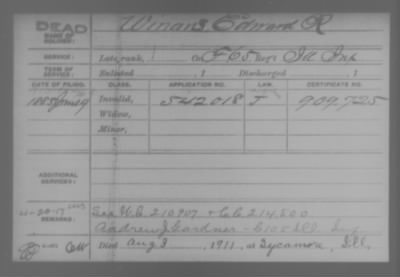 DEAD
NAME OF SOLDIER: Winans Edward R
SERVICE: Late rank, , Co F 65 Reg't Ill Inf
TERM OF SERVICE: Enlisted , 1 Discharged , 1
DATE OF FILING. CLASS. APPLICATION NO. LAW. CERTIFICATE NO.
1885 Invalid, 542018 J 909,725
Widow,
Minor,
ADDITIONAL SERVICES:
REMARKS: See W.C. 210907 + C.C. 214,500
Andrew J Gardner - C 105 Ill Inf
Died Aug 3, 1911, at Sycamore, Ill.